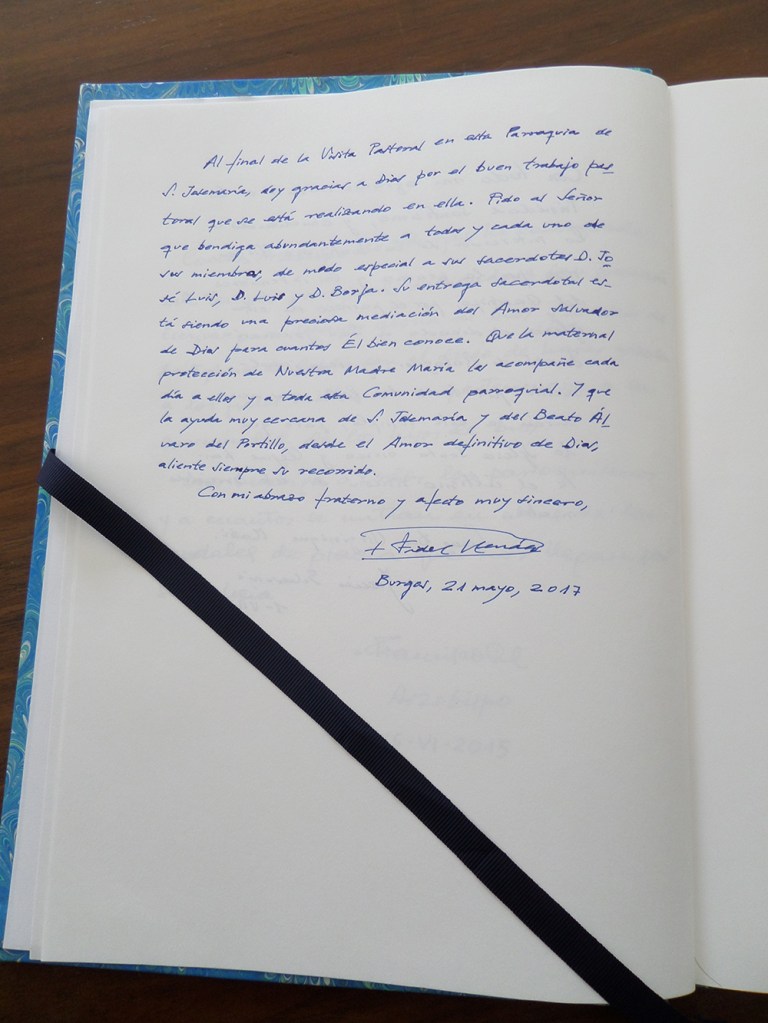 Al final de la Visita Pastoral en esta Parroquia de
S. Josemaría, doy gracias a Dios por el buen trabajo pas
toral que se está realizando en ella. Pido al Señor
que bendiga abundantemente a todos y cada uno de
sus miembros, de modo especial a sus sacerdotes D. Jo
sé Luis, D. Luis y D. Borja. Su entrega sacerdotal es-
tá siendo una preciosa mediación del Amor salvador
de Dios para cuantos Él bien conoce. Que la maternal
protección de Nuestra Madre María les acompañe cada
día a ellos y a toda esta Comunidad parroquial. Y que
la ayuda muy cercana de S. Josemaría y del Beato Ál
varo del Portillo, desde el Amor definitivo de Dios,
aliente siempre su recorrido.
Con mi abrazo fraterno y afecto muy sincero,
+ Fidel
Burgos, 21 mayo, 2017